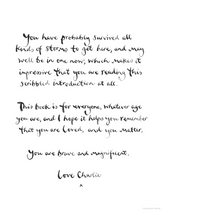 You have probably survived all
kinds of storms to get here, and may
well be in one now, which makes it
impressive that you are reading this
scribbled introduction at all.
This book is for everyone, whatever age
you are, and I hope it helps you remember
that you are Loved, and you matter.
You are brave and magnificent.
Love Charlie
x